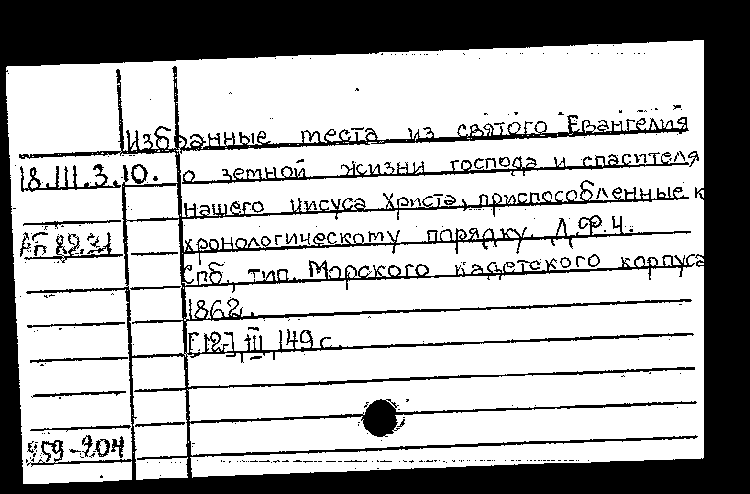 Избранные теста из святого Евангелия
18.III.3.10. о земной жизни господа и спасителя
нашего иисуса Христа, приспособленные к
хронологическому порядку Д.Ф.Ч.
Спб, тип. Морского кадетского корпуса
1862.
[12], III, 149 с.